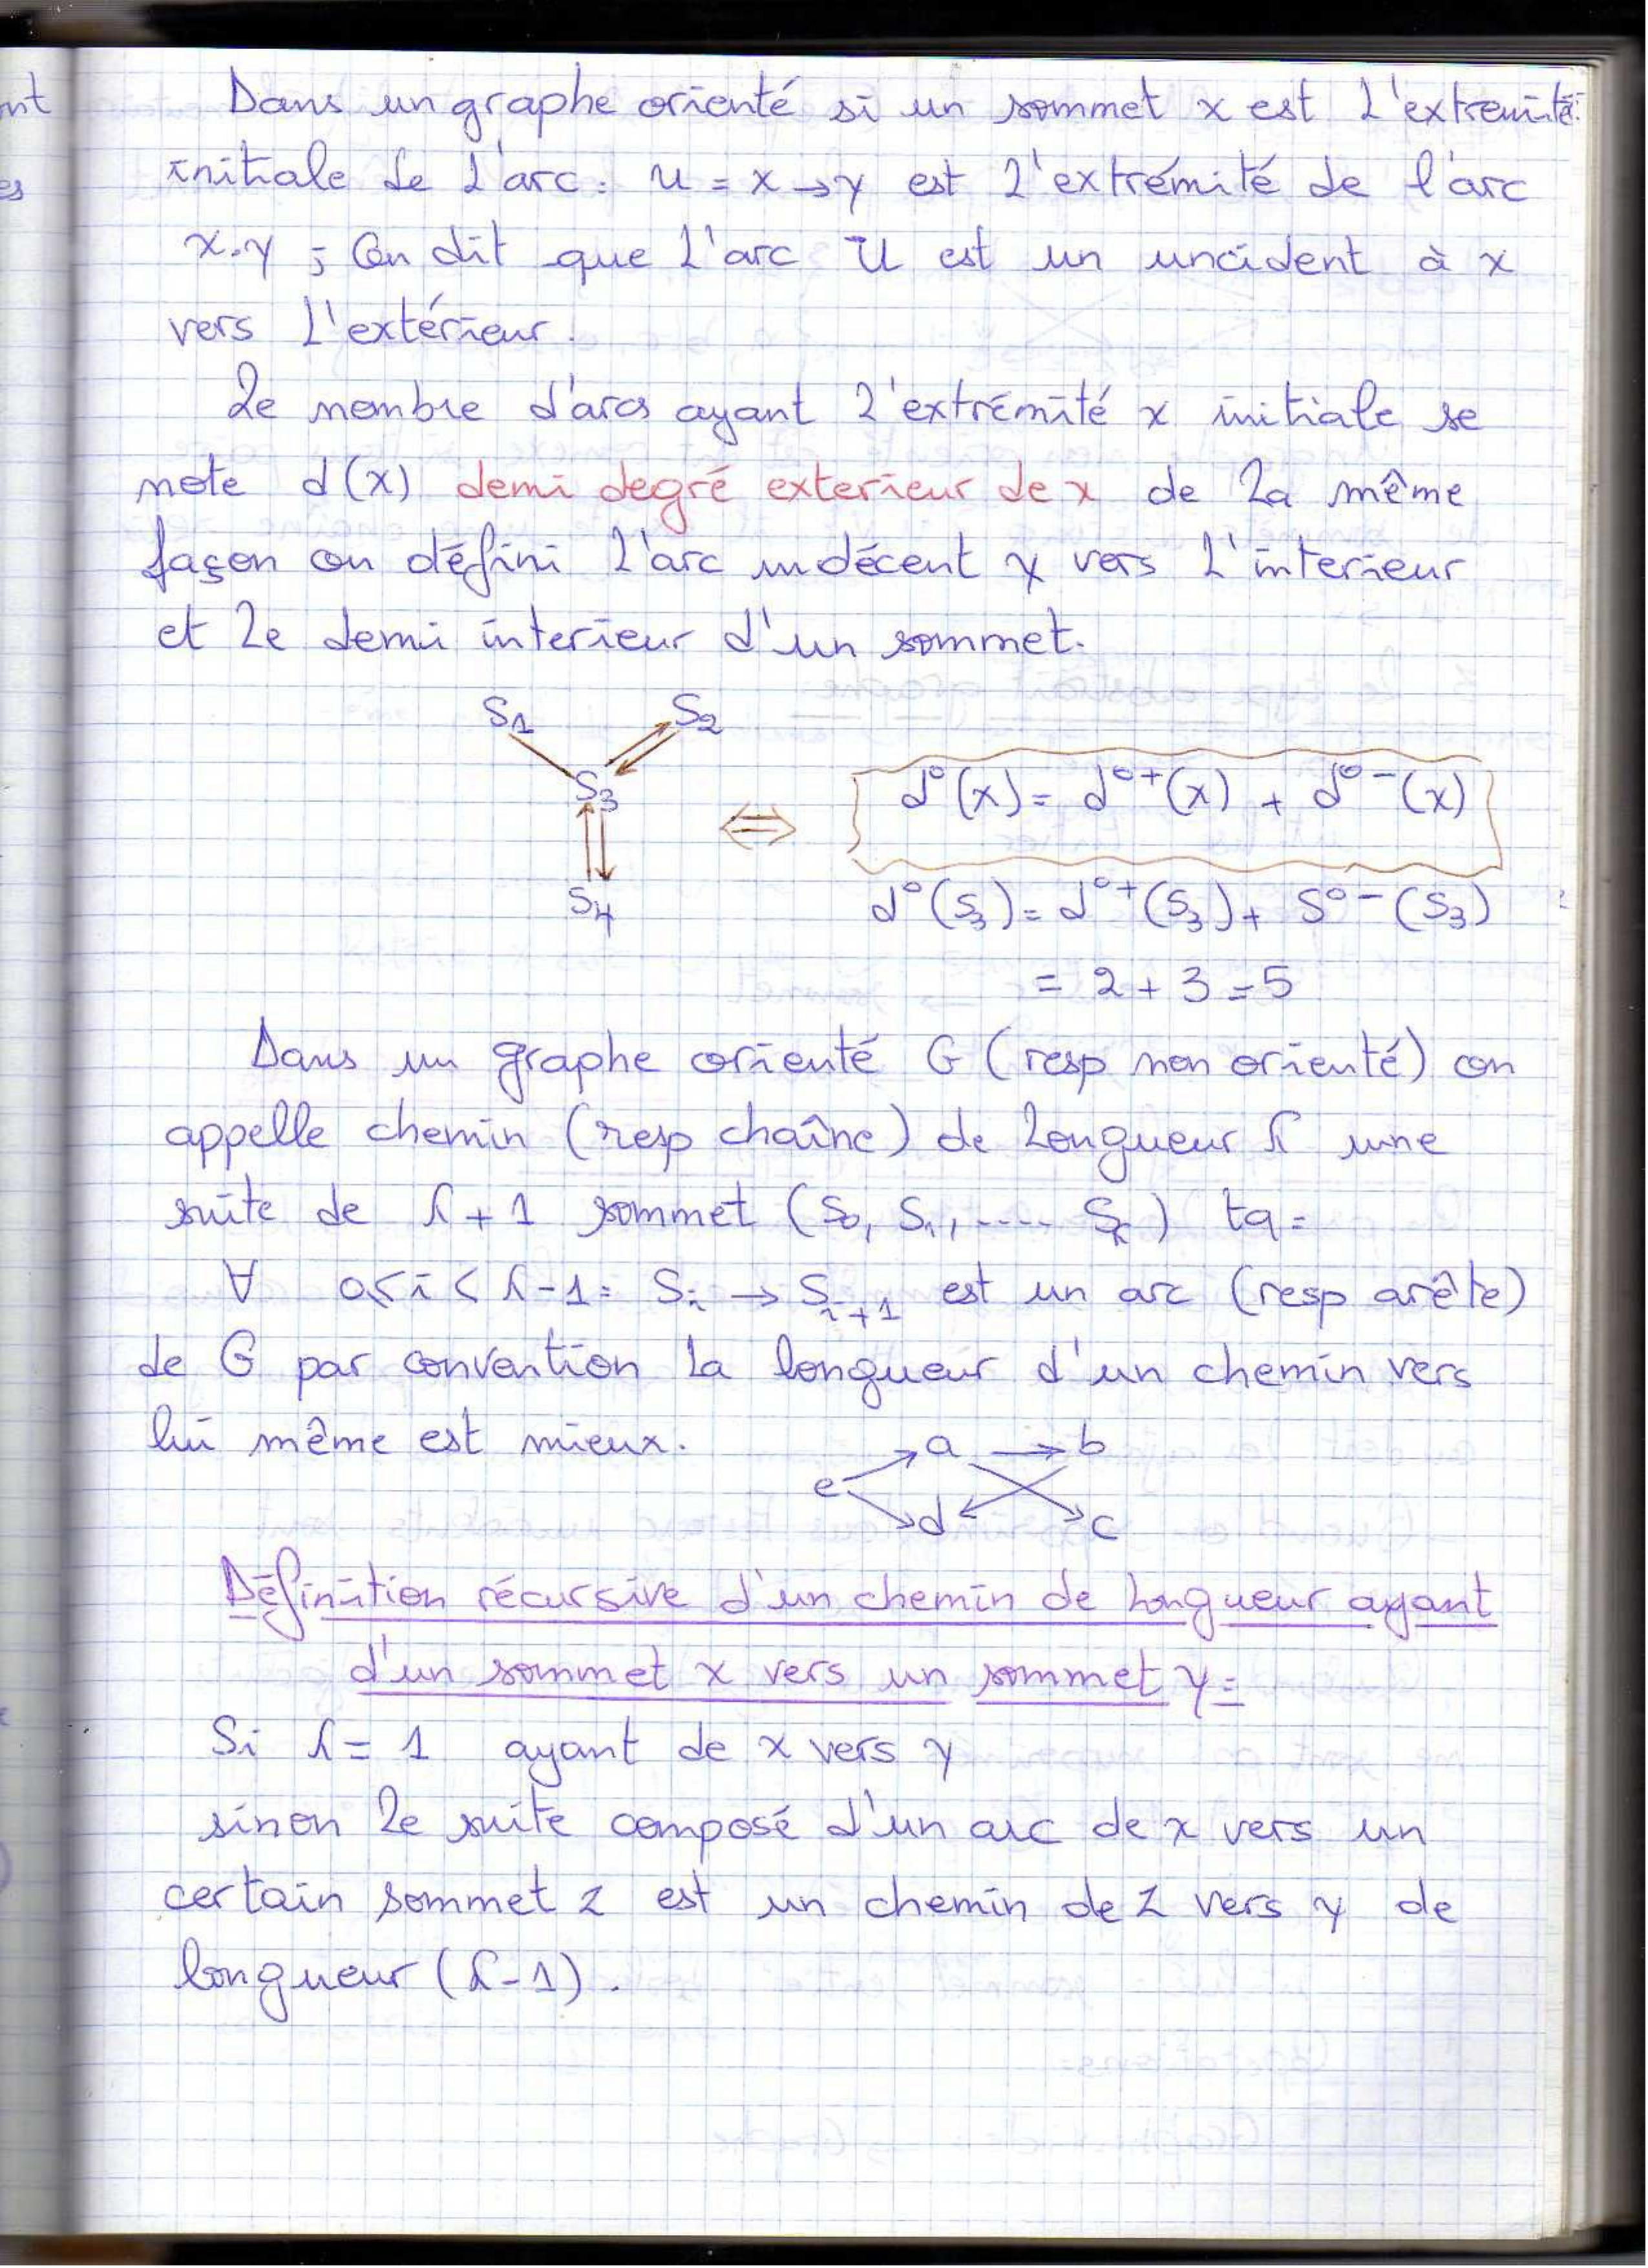 Dans un graphe orienté si un sommet x est l'extremité
initiale de l'arc : u = x → y est l'extrémité de l'arc
x.y ; On dit que l'arc U est un uncident à x
vers l'extérieur.
Le nombre d'arcs ayant l'extrémité x initiale se
note d(x) demi degré exterieur de x de la même
façon on défini l'arc indécent y vers l'interieur
et le demi interieur d'un sommet.
S1 S2
S3
S4
⇔
d°(x) = d°+(x) + d°-(x)
d°(S3) = d°+(S3) + S°-(S3)
= 2 + 3 = 5
Dans un graphe orienté G (resp non orienté) on
appelle chemin (resp chaîne) de longueur l une
suite de l + 1 sommet (S0, S1, .... Sl) tq :
∀ 0 ≤ i < l - 1 : Si → Si+1 est un arc (resp arête)
de G par convention la longueur d'un chemin vers
lui même est mieux.
a → b
e
d c
Définition récursive d'un chemin de longueur ayant
d'un sommet x vers un sommet y :
Si l = 1 ayant de x vers y
sinon le suite composé d'un arc de x vers un
certain sommet z est un chemin de z vers y de
longueur (l - 1).